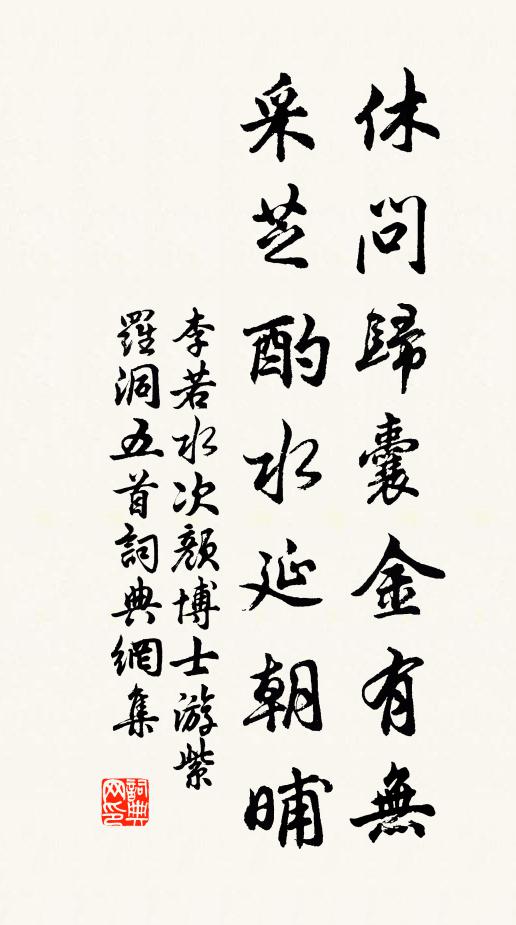 休問歸囊金有無
采芝酌水延朝晡
李若水次顏博士游紫
羅洞五首詞典網集
詞典
網印